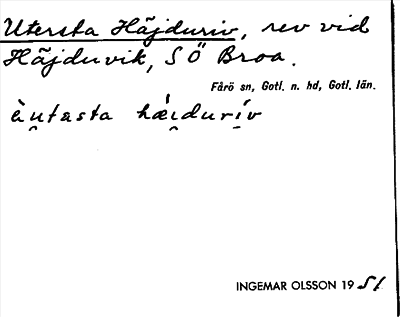 Utersta Häjduriv, rev vid
Häjduvik, SÖ Broa.
Fårö sn, Gotl. n. hd, Gotl. län.
ằu̯tasta hæ̀i̯duri̯v
INGEMAR OLSSON 19 51